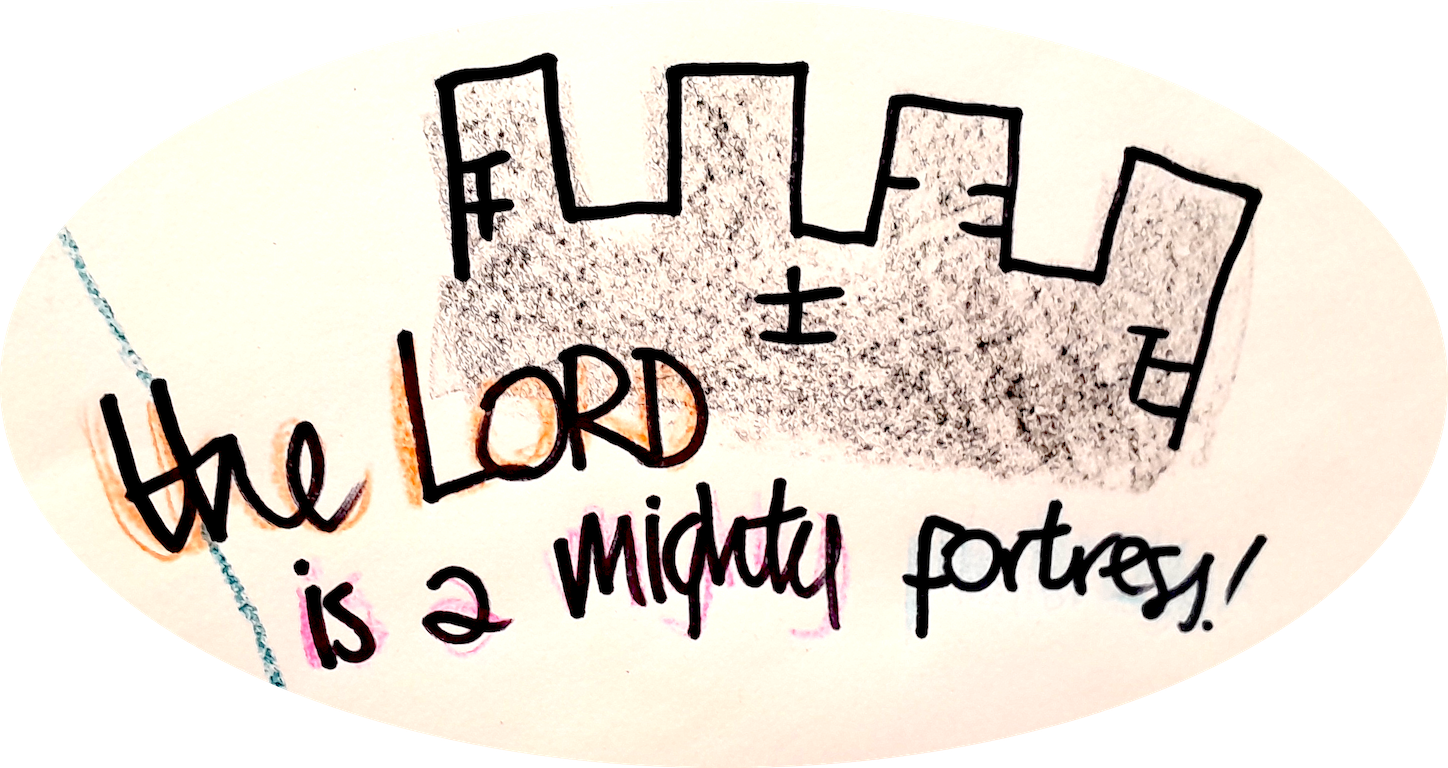 the LORD
is a mighty fortress!